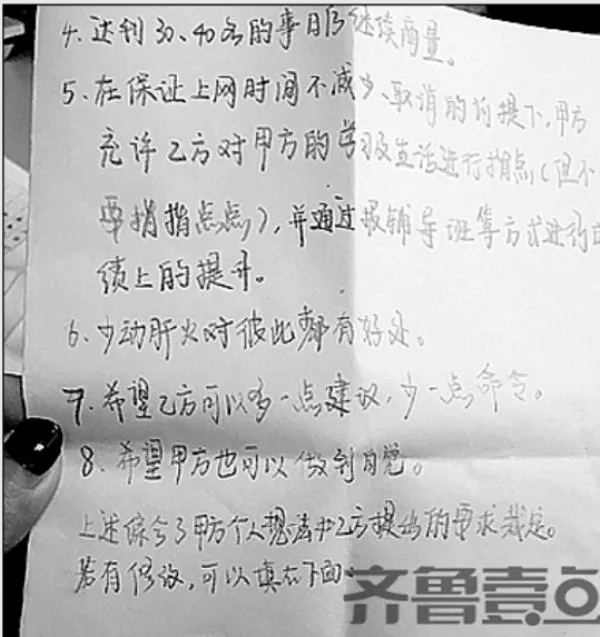 4. 达到30、40名的事日后继续商量。
5. 在保证上网时间不减少、取消的前提下,甲方
允许乙方对甲方的学习及生活进行指点(但不
要指指点点),并通过报辅导班等方式进行成
绩上的提升。
6. 少动肝火对彼此都有好处。
7. 希望乙方可以多一点建议,少一点命令。
8. 希望甲方也可以做到自觉。
上述综合了甲方个人想法和乙方提出的要求裁定。
若有修改,可以填在下面。
齐鲁壹点